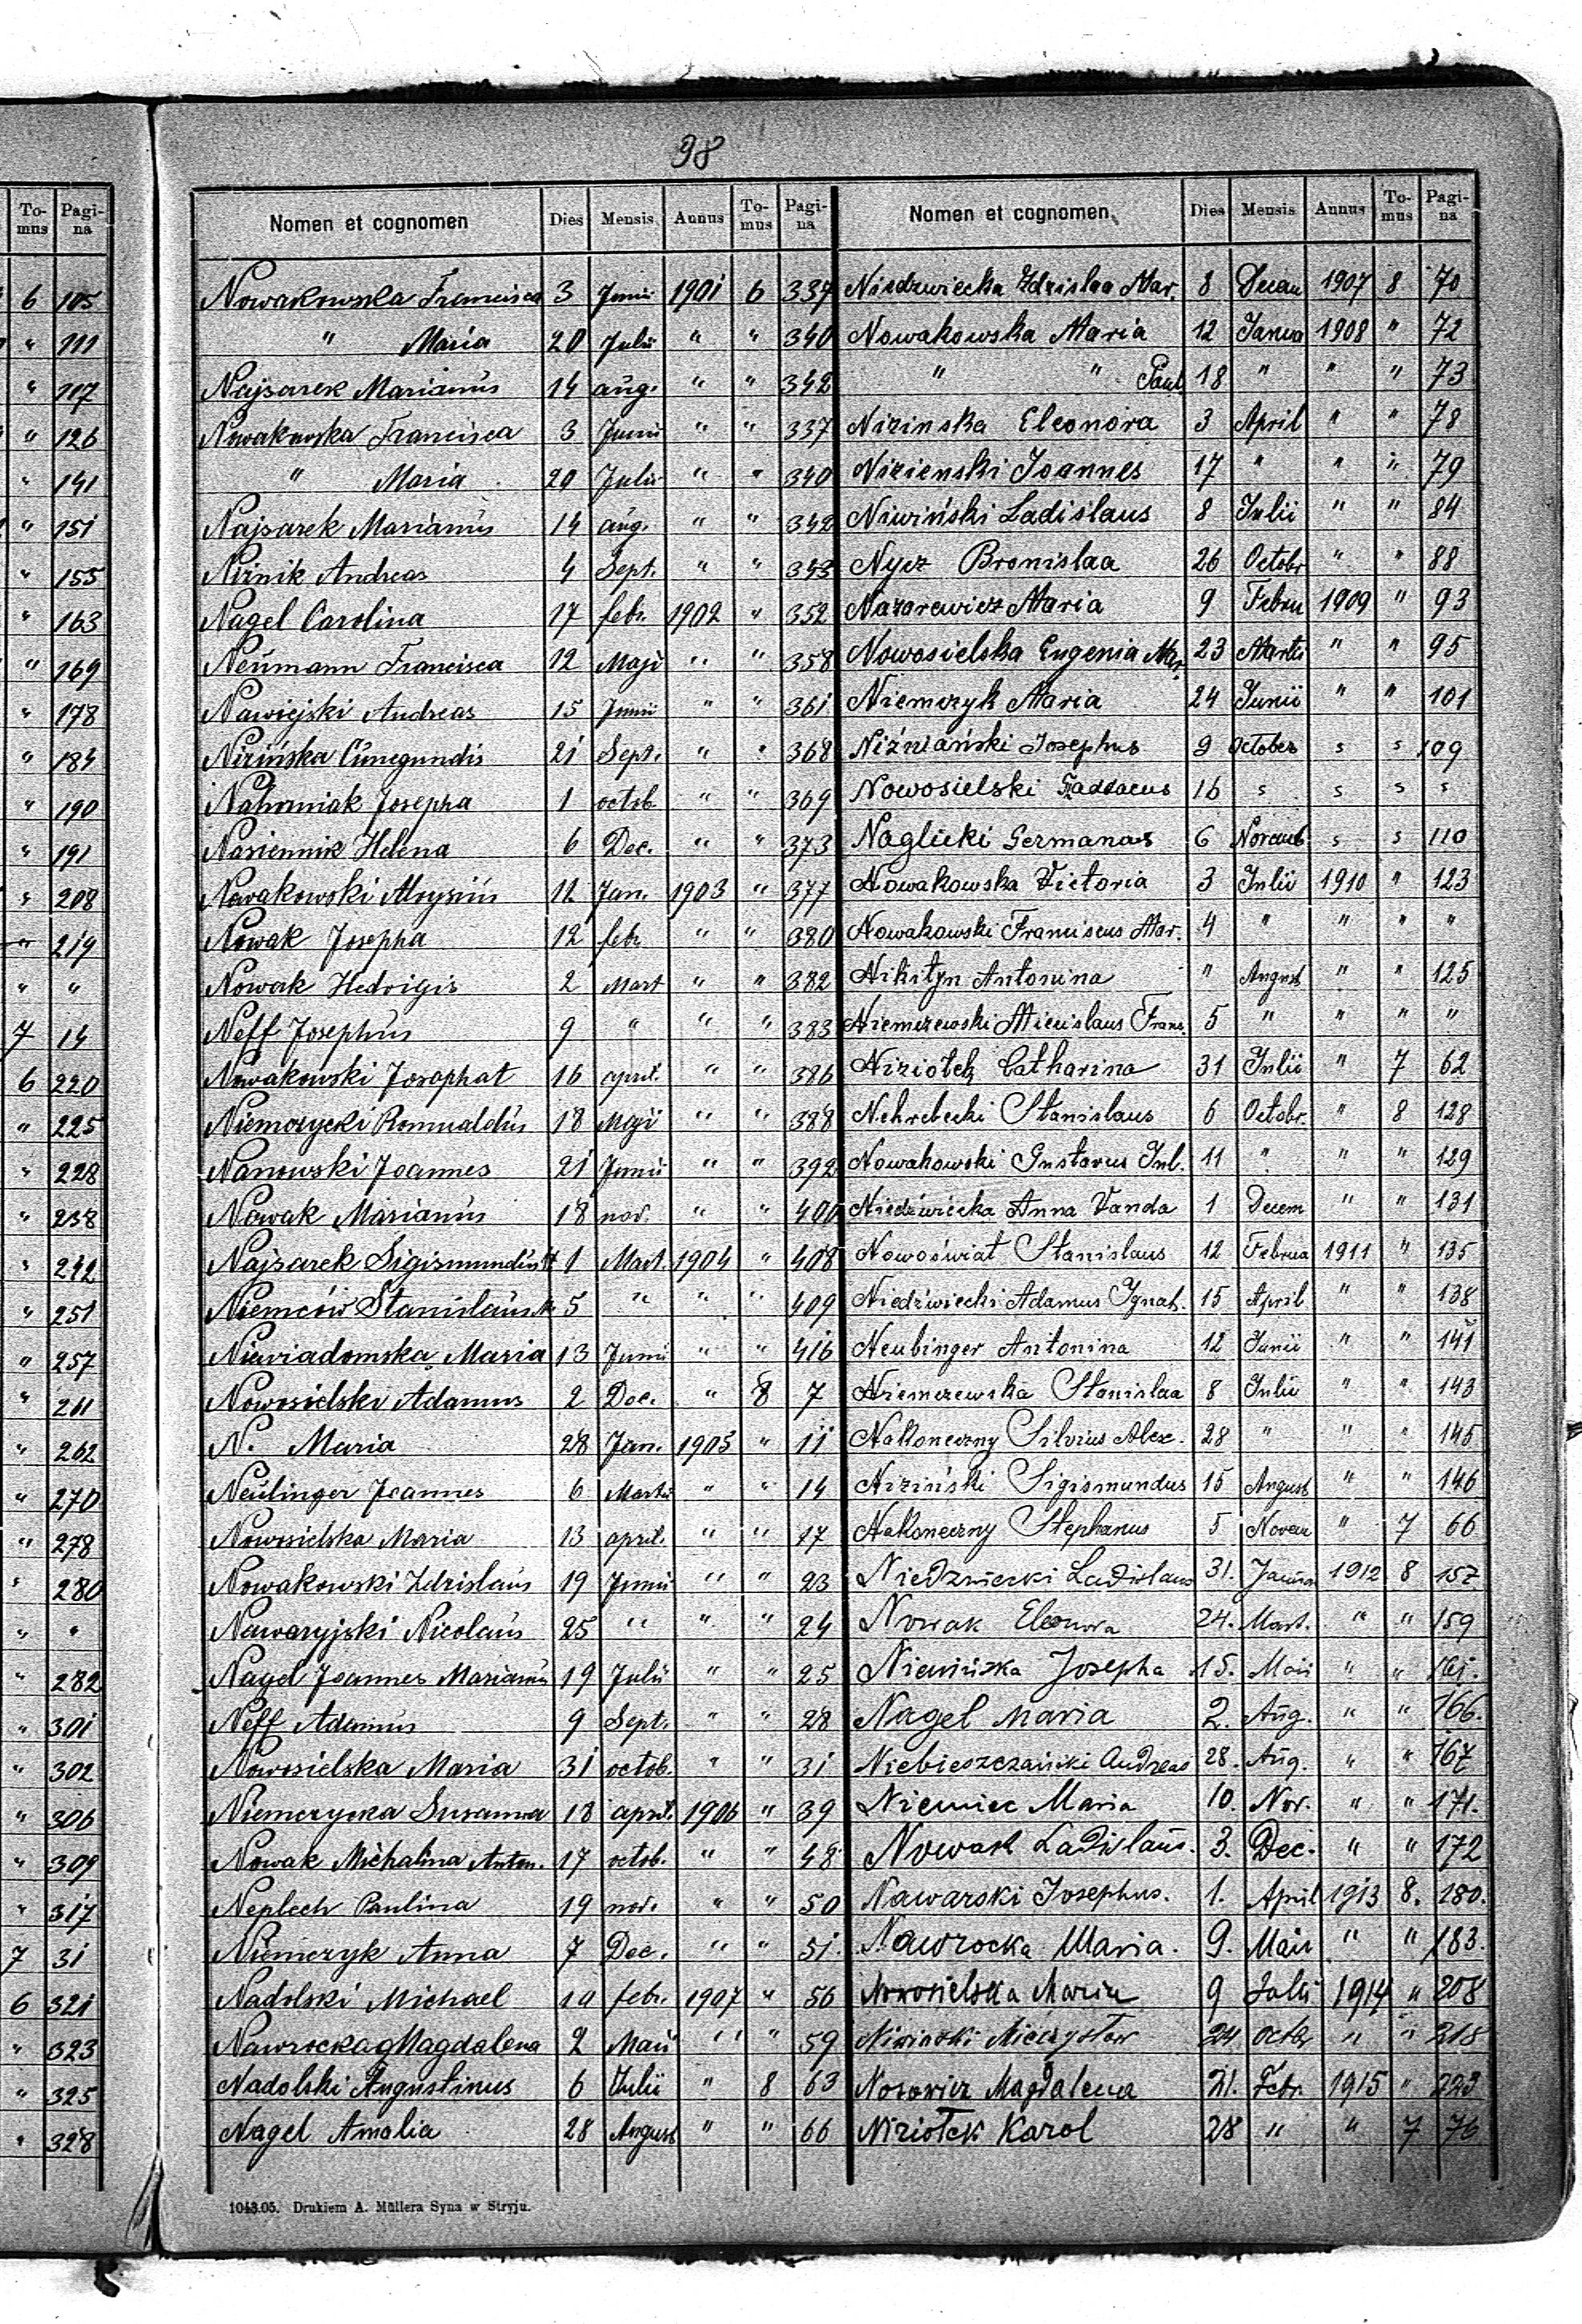 98
To-mus Pagi-na
6 105
" 111
" 117
" 126
" 141
" 151
" 155
" 163
" 169
" 178
" 184
" 190
" 191
" 208
" 219
" "
7 14
6 220
" 225
" 228
" 238
" 242
" 251
" 257
" 261
" 262
" 270
" 278
" 280
" "
" 282
" 301
" 302
" 306
" 309
" 317
7 31
6 321
" 323
" 325
" 328
Nomen et cognomen Dies Mensis Annus To-mus Pagi-na
Nowakowska Francisca 3 Junii 1901 6 337
" Maria 20 Julii " " 340
Najsarek Marianus 14 aug. " " 342
Nowakowska Francisca 3 Junii " " 337
" Maria 20 Julii " " 340
Najsarek Marianus 14 aug. " " 342
Niżnik Andreas 4 Sept. " " 343
Nagel Carolina 17 febr. 1902 " 352
Neumann Francisca 12 Maji " " 358
Nawiejski Andreas 15 Junii " " 361
Nizińska Cunegundis 21 Sept. " " 368
Nahorniak Josepha 1 octob " " 369
Nasiennik Helena 6 Dec. " " 373
Nowakowski Aloysius 12 Jan. 1903 " 377
Nowak Josepha 12 febr " " 380
Nowak Hedvigis 2 Mart " " 382
Neff Josephus 9 " " " 383
Nowakowski Josephat 16 april. " " 386
Niemczycki Romualdus 18 Maji " " 388
Nanowski Joannes 21 Junii " " 392
Nowak Marianus 18 nov. " " 400
Najsarek Sigismundus 1 Mart. 1904 " 408
Niemców Stanislaus 5 " " " 409
Niewiadomska Maria 13 Junii " " 416
Nowosielski Adamus 2 Dec. " 8 7
N. Maria 28 Jan. 1905 " 11
Neulinger Joannes 6 Martii " " 14
Nowosielska Maria 13 april. " " 17
Nowakowski Zdzislaus 19 Junii " " 23
Nawaryjski Nicolaus 25 " " " 24
Nagel Joannes Marianus 19 Julii " " 25
Neff Adamus 9 Sept. " " 28
Nowosielska Maria 31 octob. " " 31
Niemczycka Susanna 18 april. 1906 " 39
Nowak Michalina Anton. 17 octob. " " 48
Neplech Paulina 19 nov. " " 50
Niemczyk Anna 7 Dec. " " 51
Nadolski Michael 10 febr. 1907 " 56
Nawrocka Magdalena 2 Maii " " 59
Nadolski Augustinus 6 Julii " 8 63
Nagel Amalia 28 August " " 66
Nomen et cognomen Dies Mensis Annus To-mus Pagi-na
Niedzwiecka Zdzislaa Mar. 8 Decem 1907 8 70
Nowakowska Maria 12 Janua 1908 " 72
" " Paul 18 " " " 73
Nizinska Eleonora 3 April " " 78
Nizienski Joannes 17 " " " 79
Niwiński Ladislaus 8 Julii " " 84
Nycz Bronislaa 26 Octobr " " 88
Nazarewicz Maria 9 Febru 1909 " 93
Nowosielska Eugenia Mar. 23 Martii " " 95
Niemczyk Maria 24 Junii " " 101
Niźniański Josephus 9 October s s 109
Nowosielski Taddaeus 16 s s s s
Naglicki Germanus 6 Novemb s s 110
Nowakowska Victoria 3 Julii 1910 " 123
Nowakowski Franciscus Mar. 4 " " " "
Nikityn Antonina " August " " 125
Niemczewski Miecislaus Franc. 5 " " " "
Niziołek Catharina 31 Julii " 7 62
Nehrebecki Stanislaus 6 Octobr. " 8 128
Nowakowski Gustavus Jul. 11 " " " 129
Niedźwiecka Anna Vanda 1 Decem " " 131
Nowoświat Stanislaus 12 Februa 1911 " 135
Niedźwiecki Adamus Ignat. 15 April " " 138
Neubinger Antonina 12 Junii " " 141
Niemczewska Stanislaa 8 Julii " " 143
Nakoneczny Silvius Alex. 28 " " " 145
Niziński Sigismundus 15 August " " 146
Nakoneczny Stephanus 5 Novem " 7 66
Niedzwiecki Ladislaus 31. Janua 1912 8 157
Nowak Eleonora 24. Mart. " " 159
Niewińska Josepha 15. Maii " " 161.
Nagel Maria 2. Aug. " " 166.
Niebieszczański Andreas 28. Aug. " " 167
Niemiec Maria 10. Nov. " " 171.
Nowak Ladislaus. 3. Dec. " " 172
Nawarski Josephus. 1. April 1913 8. 180.
Nawrocka Maria. 9. Maii " " 183.
Nowosielska Maria 9 Julii 1914 " 208
Niwinski Mieczysław 24 Octobr " " 218
Nosowicz Magdalena 21. Febr. 1915 " 223
Niziołek Karol 28 " " 7 76
1043.05. Drukiem A. Müllera Syna w Stryju.